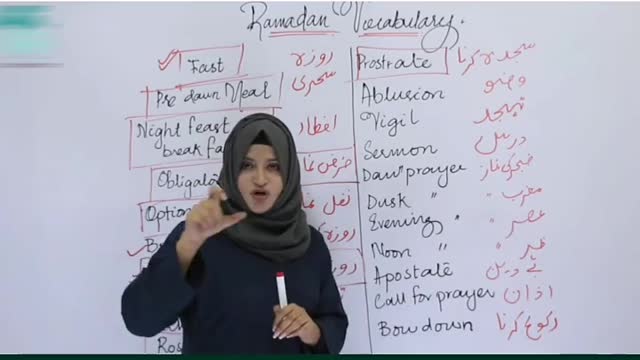 Ramadan Vocabulary.
Fast روزہ
Pre dawn Meal سحری
Night feast افطار
break fa
Obligato فرض نماز
Option نفل نماز
B روزہ
روزہ
Ros
Prostrate سجدہ کرنا
Ablusion وضو
Vigil تہجد
Sermon درس
Dawn prayer فجر کی نماز
Dusk " مغرب "
Evening " عصر "
Noon " ظہر "
Apostate بے دین
Call for prayer اذان
Bow down رکوع کرنا